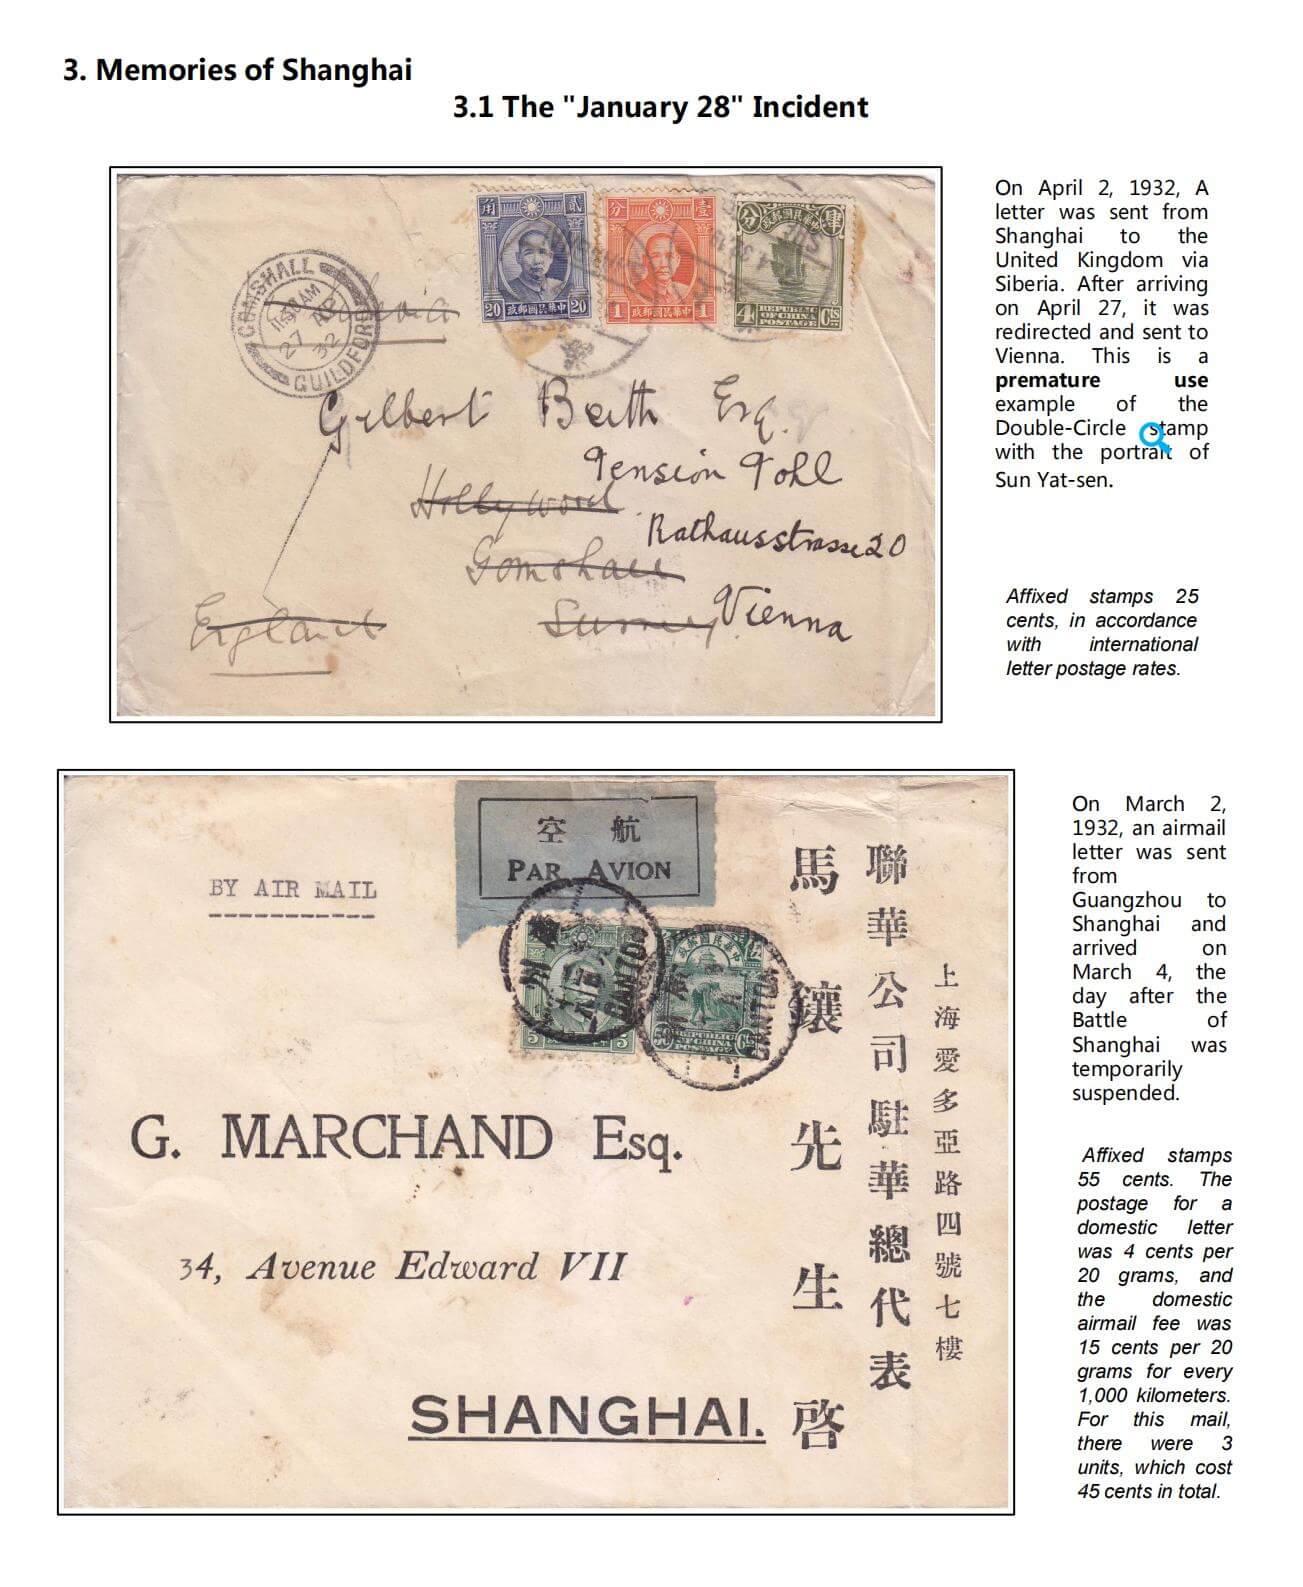 3. Memories of Shanghai
3.1 The "January 28" Incident
GOMSHALL
11.30AM
27 AP
32
GUILDFORD
角 貳
20 政郵國民華中 20
分 壹
1 政郵國民華中 1
分 政郵國民華中 肆
4 REPUBLIC OF CHINA POSTAGE Cts
Gilbert Beith Esq.
Pension Pohl
Hollywood
Rathausstrasse 20
Gomshall
England
Surrey Vienna
On April 2, 1932, A
letter was sent from
Shanghai to the
United Kingdom via
Siberia. After arriving
on April 27, it was
redirected and sent to
Vienna. This is a
premature use
example of the
Double-Circle stamp
with the portrait of
Sun Yat-sen.
Affixed stamps 25
cents, in accordance
with international
letter postage rates.
空 航
PAR AVION
BY AIR MAIL
CANTON
CANTON
5 5
50 REPUBLIC OF CHINA POSTAGE Cts
G. MARCHAND Esq.
34, Avenue Edward VII
SHANGHAI.
上海愛多亞路四號七樓
聯華公司駐華總代表
馬鑲先生啓
On March 2,
1932, an airmail
letter was sent
from
Guangzhou to
Shanghai and
arrived on
March 4, the
day after the
Battle of
Shanghai was
temporarily
suspended.
Affixed stamps
55 cents. The
postage for a
domestic letter
was 4 cents per
20 grams, and
the domestic
airmail fee was
15 cents per 20
grams for every
1,000 kilometers.
For this mail,
there were 3
units, which cost
45 cents in total.